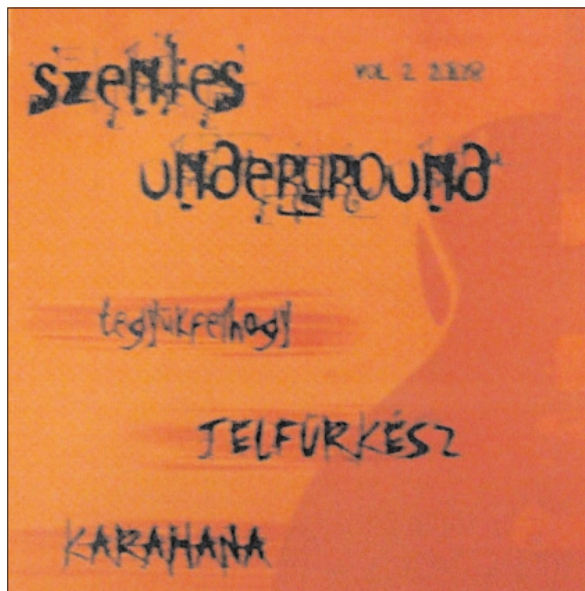 szentes
VOL. 2. 2008
underground
tegyükfelhogy
JELFÜRKÉSZ
KARAHANA